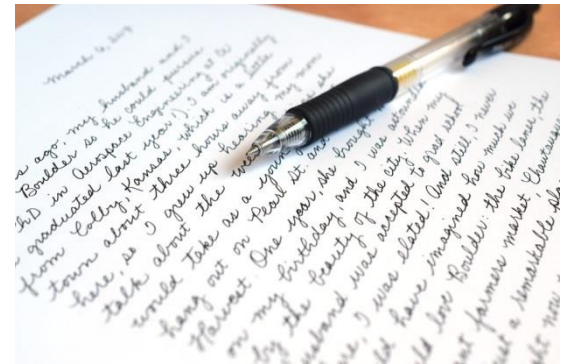 March 6, 2013
s ago, my husband and I
Boulder so he could pursue
PhD in Aerospace Engineering at CU
graduated last year!). I am originally
from Colby, Kansas, which is a little
town about three hours away from
here, so I grew up hearing my mom
talk about the she
would take as a young and
hang out on Pearl St. and
Harvest. One year, she brought
on my birthday, and I was astounded
by the beauty of the city. When my
husband was accepted to grad school
I was elated! And still I never
have imagined how much we
love Boulder: the bike lanes, the
farmers market, Chautauqua
a remarkable
right now